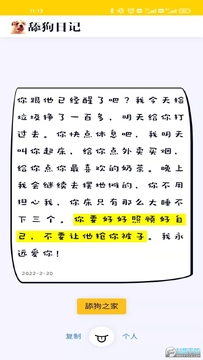 11:13
舔狗日记
你跟他已经醒了吧？我今天捡
垃圾挣了一百多，明天给你打
过去。你快点休息吧，我明天
叫你起床，给你点外卖买烟，
给你点你最喜欢的奶茶。晚上
我会继续去摆地摊的，你不用
担心我，你床只有那么大睡不
下三个。你要好好照顾好自
己，不要让他抢你被子。我永
远爱你！
2022-2-20
舔狗之家
复制
个人